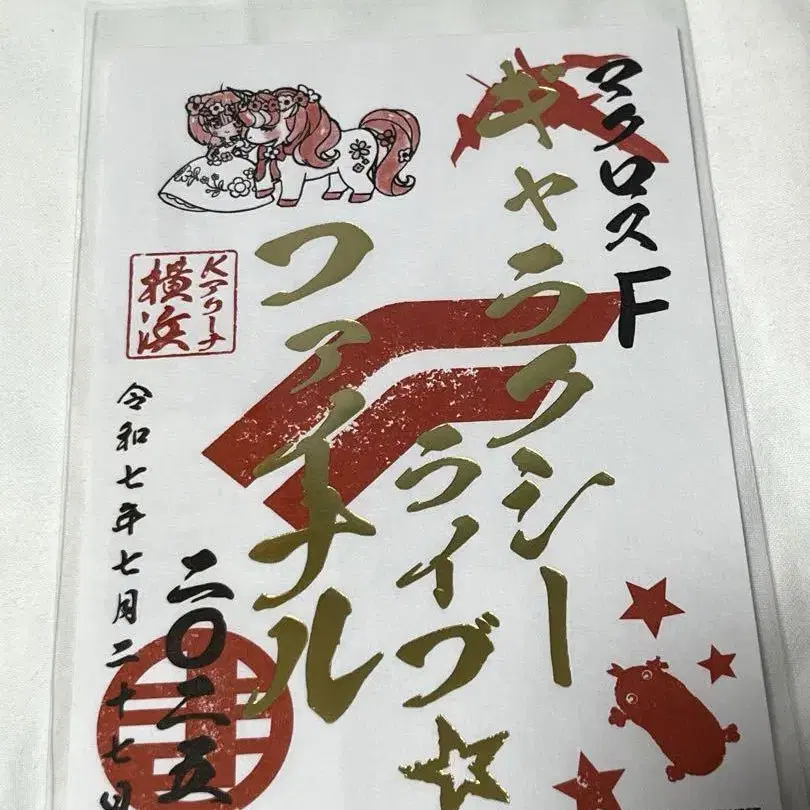 マクロスF
ギャラクシー
ライブ☆
ファイナル
二〇二五
Kアリーナ
横浜
令和七年七月二十七日